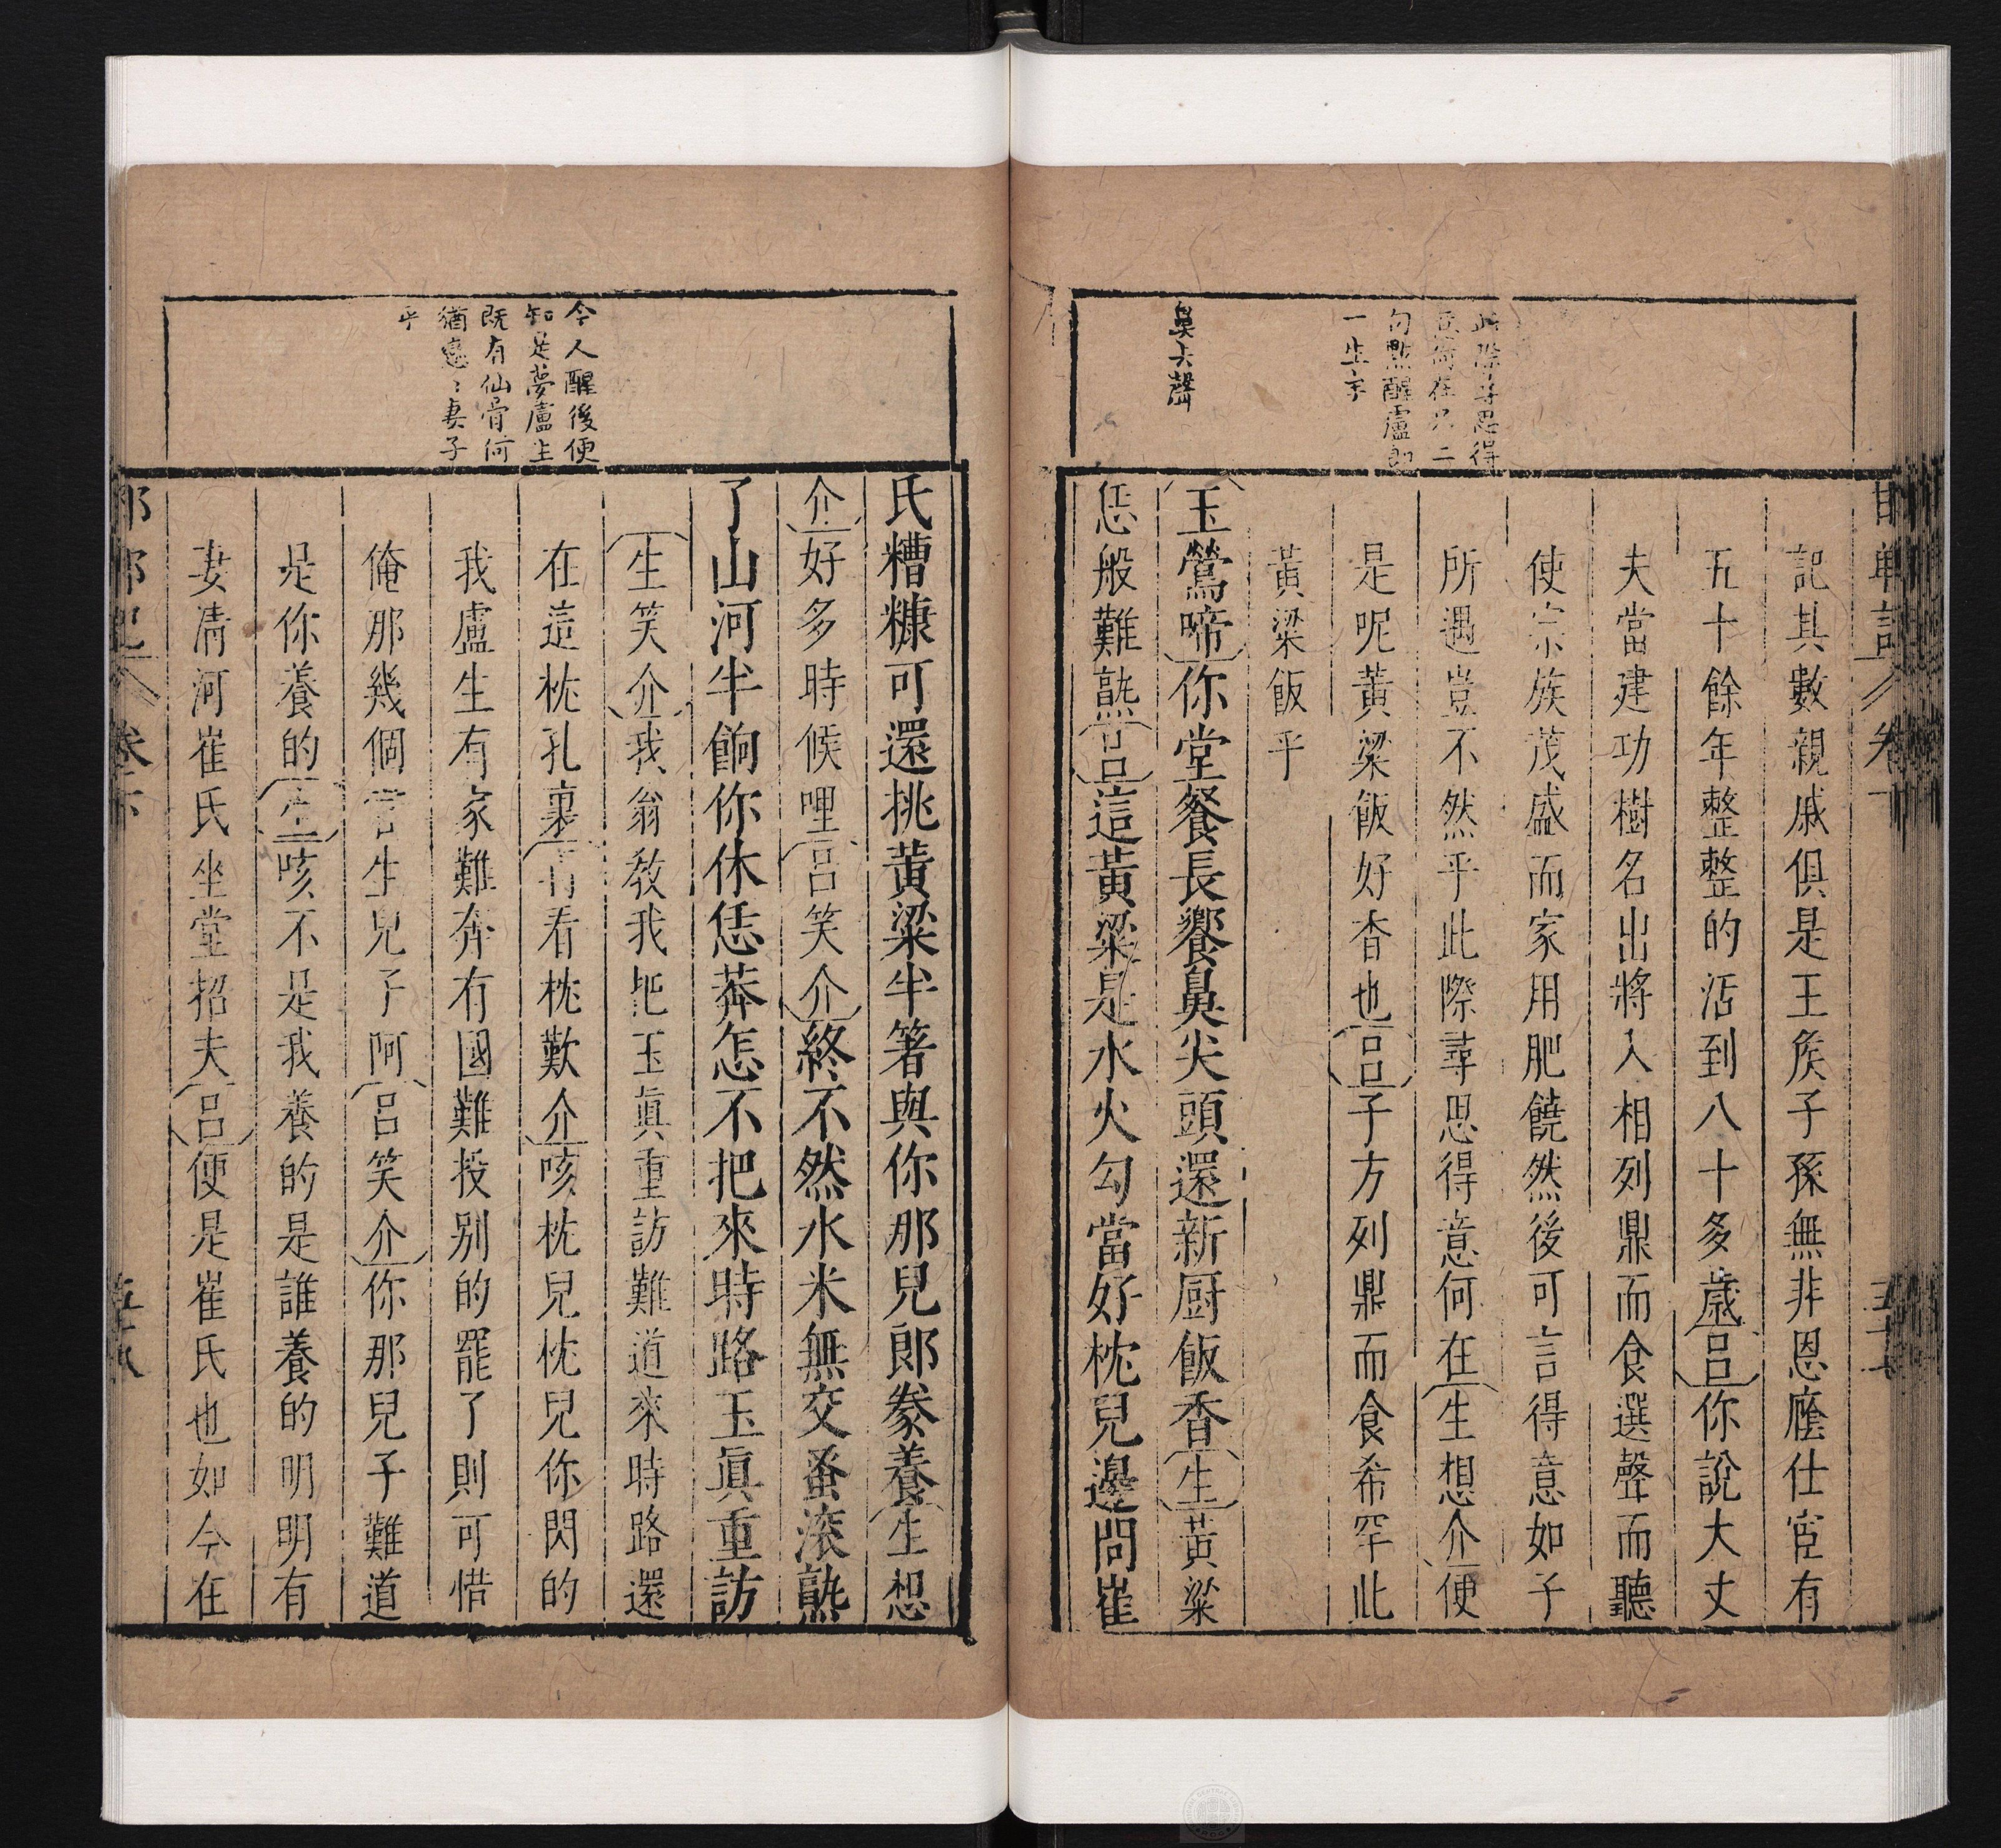 此際尋思得
意何在只二
句點醒盧郎
一生字
臭去聲
記其數親戚俱是王矦子孫無非恩廕仕宦有
五十餘年整整的活到八十多歲呂你說大丈
夫當建功樹名出將入相列鼎而食選聲而聽
使宗族茂盛而家用肥饒然後可言得意如子
所遇豈不然乎此際尋思得意何在生想介便
是呢黃粱飯好香也呂子方列鼎而食希罕此
黃粱飯乎
玉鶯啼你堂餐長饗鼻尖頭還新厨飯香生黃粱
恁般難熟呂這黃粱是水火勾當好枕兒邊問崔
今人醒後便
知是夢盧生
既有仙骨何
猶戀戀妻子
乎
氏糟糠可還挑黃粱半箸與你那兒郎豢養生想
介好多時候哩呂笑介終不然水米無交蚤滚熟
了山河半餉你休恁莽怎不把來時路玉眞重訪
生笑介我翁敎我把玉眞重訪難道來時路還
在這枕孔裏看枕歎介咳枕兒枕兒你閃的
我盧生有家難奔有國難投别的罷了則可惜
俺那幾個官生兒子阿呂笑介你那兒子難道
是你養的生咳不是我養的是誰養的明明有
妻淸河崔氏坐堂招夫呂便是崔氏也如今在
邯鄲記 卷下